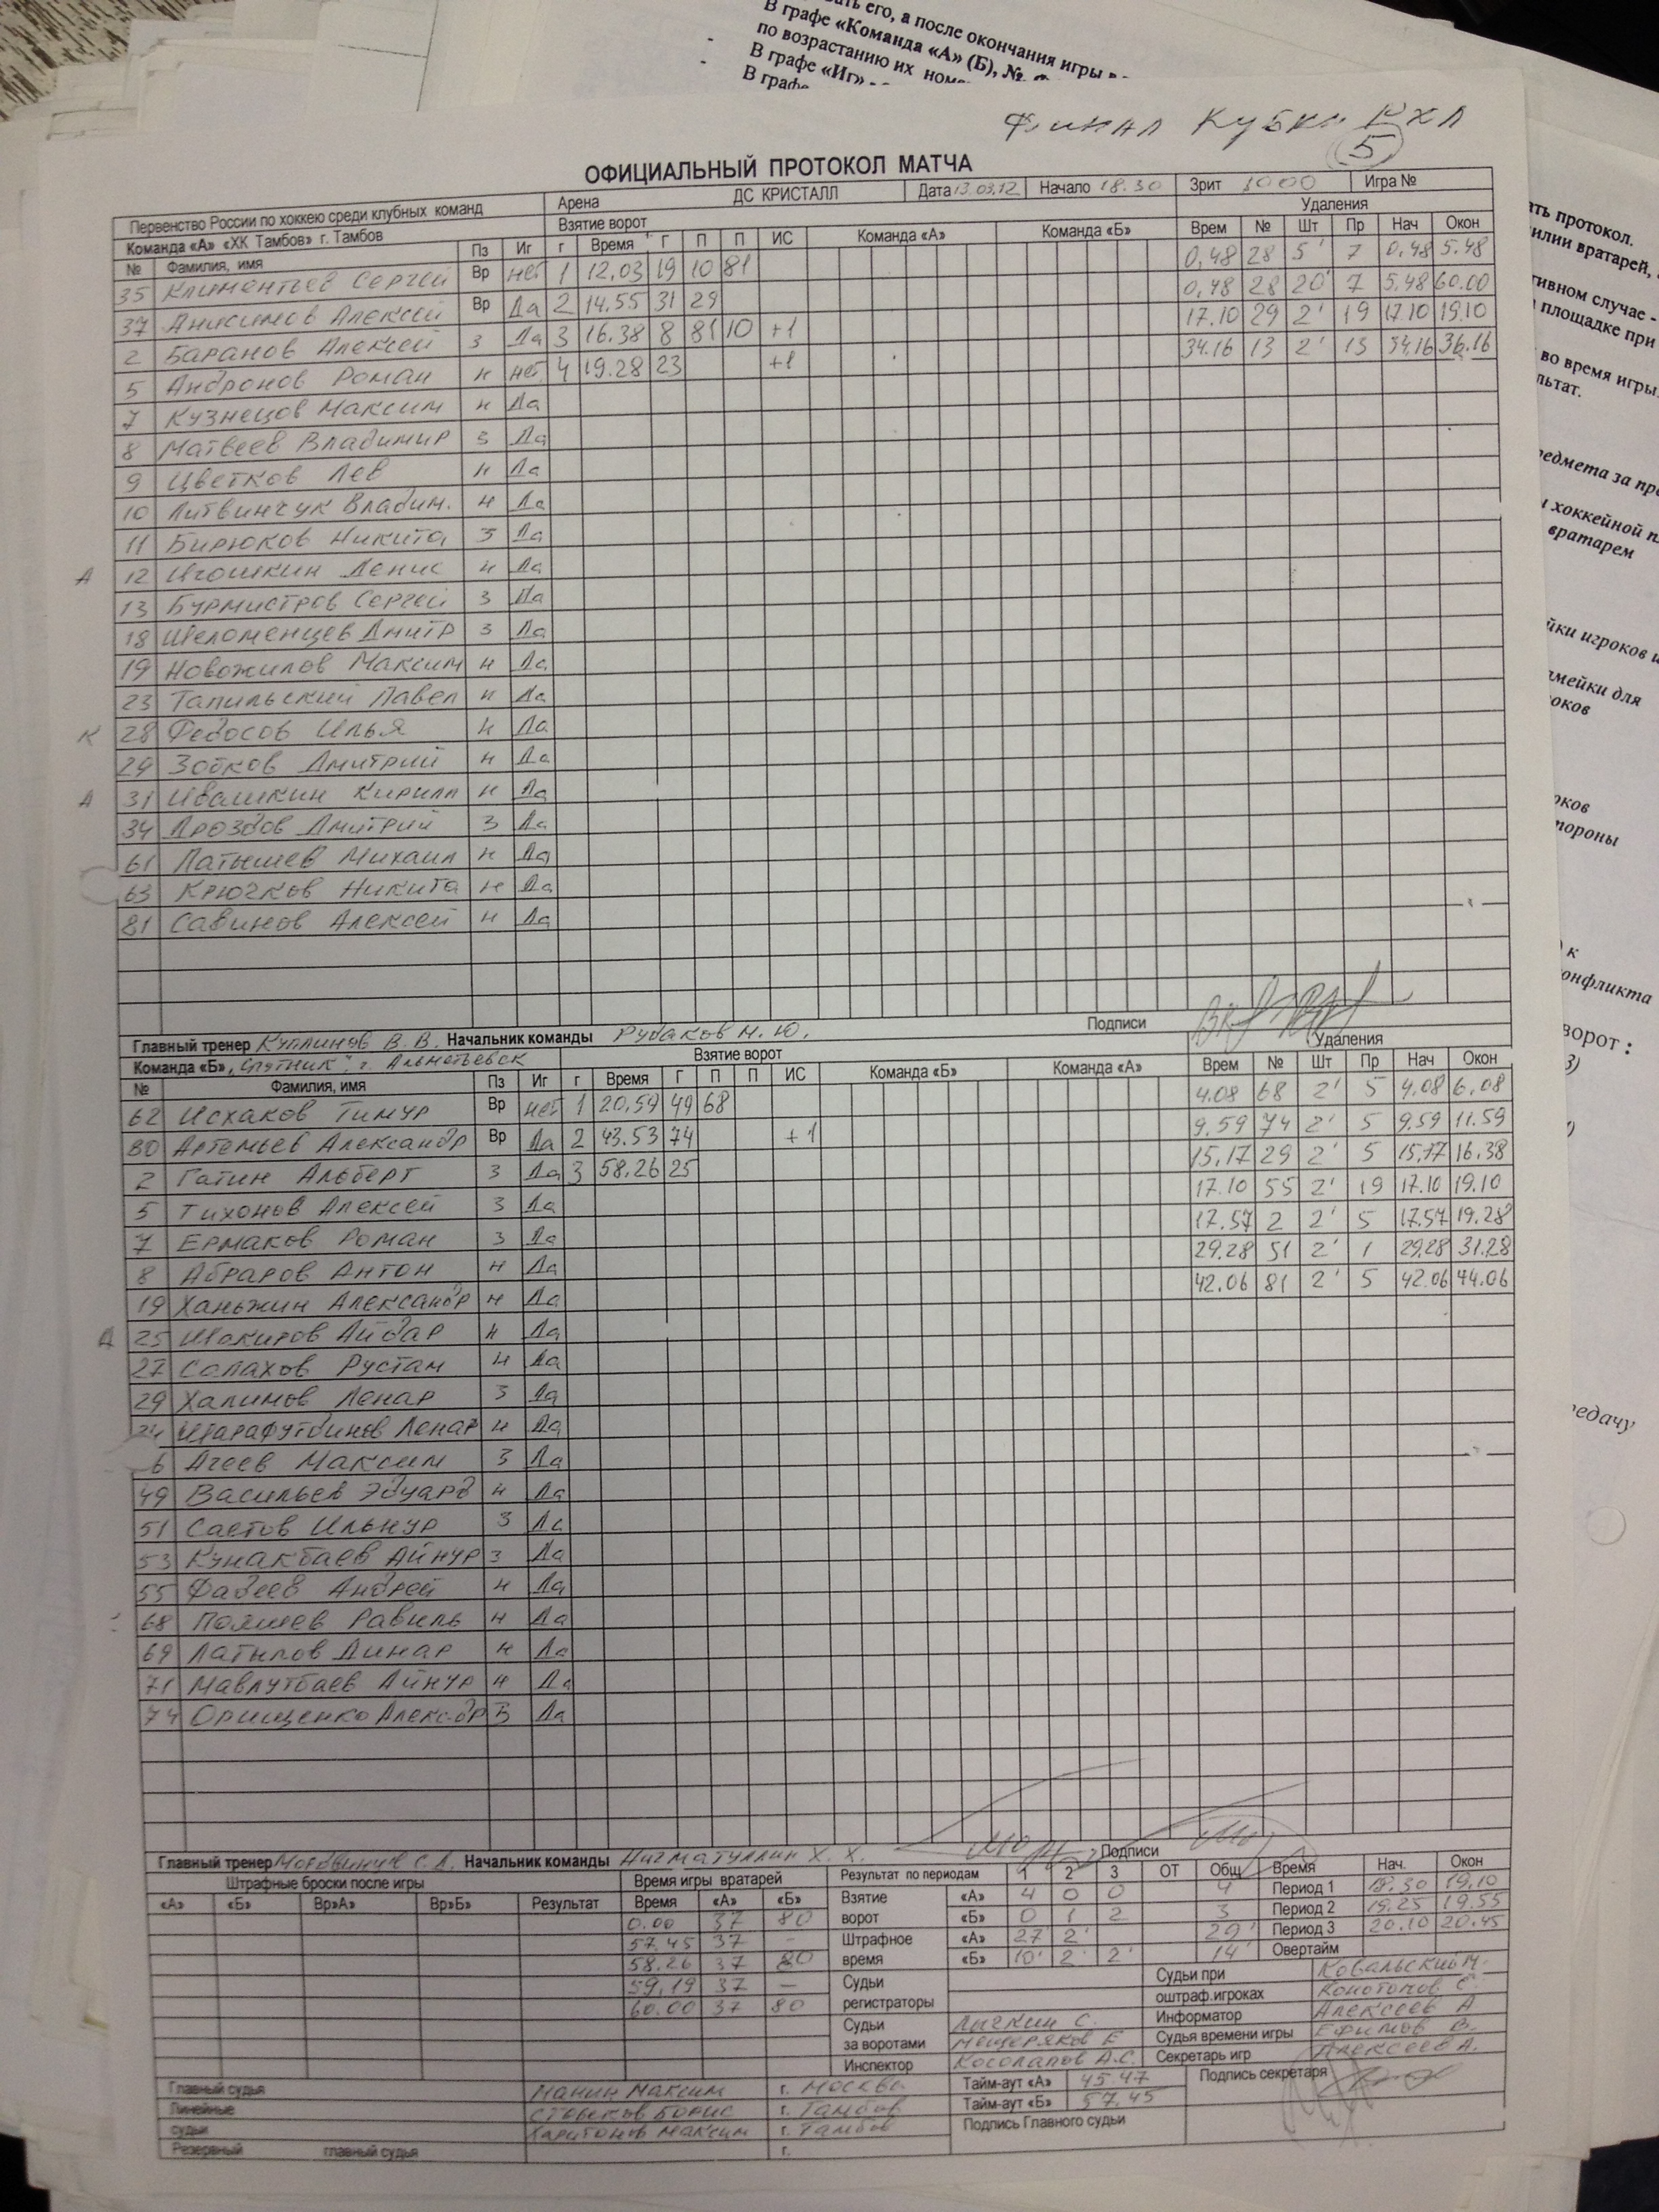 его, а после окончания игры в
В графе «Команда «А» (Б), №,
по возрастанию их
В графе «Иг» -
В графе
Финал Кубка РХЛ
5
ОФИЦИАЛЬНЫЙ ПРОТОКОЛ МАТЧА
Первенство России по хоккею среди клубных команд Арена ДС КРИСТАЛЛ Дата 13.03.12 Начало 18.30 Зрит 1000 Игра №
Команда «А» «ХК Тамбов» г. Тамбов Взятие ворот Удаления
№ Фамилия, имя Пз Иг г Время Г П П ИС Команда «А» Команда «Б» Врем № Шт Пр Нач Окон
35 Климентьев Сергей Вр нет 1 12.03 19 10 81 0,48 28 5' 7 0,48 5.48
37 Анисимов Алексей Вр Да 2 14.55 31 29 0,48 28 20' 7 5.48 60.00
2 Баранов Алексей З Да 3 16.38 8 81 10 +1 17.10 29 2' 19 17.10 19.10
5 Андронов Роман н нет 4 19.28 23 +1 34.16 13 2' 13 34.16 36.16
7 Кузнецов Максим н Да
8 Матвеев Владимир З Да
9 Цветков Лев н Да
10 Литвинчук Владим. н Да
11 Бирюков Никита З Да
А 12 Ивошкин Денис н Да
13 Бурмистров Сергей З Да
18 Шеломенцев Дмитр З Да
19 Новожилов Максим н Да
23 Тапильский Павел н Да
К 28 Федосов Илья н Да
29 Зобков Дмитрий н Да
А 31 Ивашкин Кирилл н Да
34 Дроздов Дмитрий З Да
61 Латышев Михаил н Да
63 Крючков Никита н Да
81 Савинов Алексей н Да
Главный тренер Куплинов В. В. Начальник команды Рудаков Н. Ю. Подписи
Команда «Б» „Спутник“ г. Альметьевск Взятие ворот Удаления
№ Фамилия, имя Пз Иг г Время Г П П ИС Команда «Б» Команда «А» Врем № Шт Пр Нач Окон
62 Исхаков Тимур Вр нет 1 20.59 49 68 4.08 68 2' 5 4.08 6.08
80 Артемьев Александр Вр Да 2 43.53 74 +1 9.59 74 2' 5 9.59 11.59
2 Гатин Альберт З Да 3 58.26 25 15.17 29 2' 5 15.17 16.38
5 Тихонов Алексей З Да 17.10 55 2' 19 17.10 19.10
7 Ермаков Роман З Да 17.57 2 2' 5 17.57 19.28
8 Абраров Антон н Да 29.28 51 2' 1 29.28 31.28
19 Ханьжин Александр н Да 42.06 81 2' 5 42.06 44.06
А 25 Шакиров Айдар н Да
27 Салахов Рустам н Да
29 Халимов Ленар З Да
Шарафутдинов Ленар н Да
6 Агеев Максим З Да
49 Васильев Эдуард н Да
51 Саетов Ильнур З Да
53 Кунакбаев Айнур З Да
55 Фадеев Андрей н Да
68 Поляшев Равиль н Да
69 Латыпов Динар н Да
71 Мавлутбаев Айнур н Да
74 Орищенко Алекс-др З Да
Главный тренер С. Л. Начальник команды Нигматуллин Х. Х. Подписи
Штрафные броски после игры Время игры вратарей Результат по периодам 1 2 3 ОТ Общ Время Нач. Окон
«А» «Б» Вр»А» Вр»Б» Результат Время «А» «Б» Взятие «А» 4 0 0 4 Период 1 18.30 19.10
0.00 37 80 ворот «Б» 0 1 2 3 Период 2 19.25 19.55
57.45 37 - Штрафное «А» 27' 2' 29' Период 3 20.10 20.45
58.26 37 80 время «Б» 10' 2' 2' 14' Овертайм
59,19 37 — Судьи Судьи при Ковальский М.
60.00 37 80 регистраторы оштраф.игроках Конотопов С.
Судьи Лычкин С. Информатор Алексеев А
за воротами Мещеряков Е Судья времени игры Ефимов В.
Инспектор Косолапов А.С. Секретарь игр Алексеев А.
Главный судья Манин Максим г. Москва Тайм-аут «А» 45.47 Подпись секретаря
Линейные Стыков Борис г. Тамбов Тайм-аут «Б» 57.45
судьи Харитонов Максим г. Тамбов Подпись Главного судьи
Резервный главный судья г.
ать протокол.
милии вратарей,
тивном случае -
площадке при
во время игры.
льтат.
редмета за
хоккейной
вратарем
йки игроков и
мейки для
роков
оков
тороны
к
онфликта
ворот :
3)
редачу